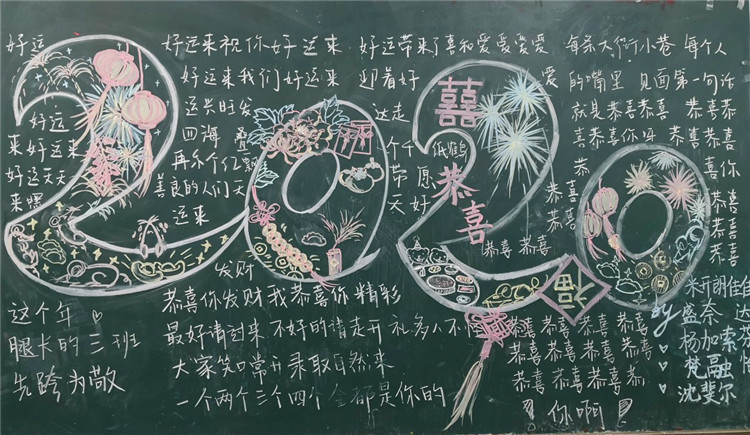 好运
好运来祝你好运来
好运来我们好运来
运兴旺发达走
四海
好运带来了喜和爱爱爱爱
迎着好
爱
每条大街小巷 每个人
的嘴里 见面第一句话
就是恭喜恭喜 恭喜恭
喜恭喜你呀 恭喜恭喜
好运
来好运来
好运天天
来
善良的人们天
运来
个千
带愿
天好
囍
恭喜
恭喜
恭喜
恭喜
恭喜 恭喜
你
恭喜
恭喜
恭喜
2020
福
发财
恭喜你发财我恭喜你精彩
最好请过来 不好的请走开 礼多人不怪
大家笑口常开录取自然来
一个两个三个四个全都是你的
恭喜 恭喜 恭喜
恭喜 恭喜 恭喜 恭喜
恭喜 恭喜 恭喜 恭喜
恭喜 恭喜 恭喜 恭
!你啊!
这个年
腿长的三班
先跨为敬
by
盛奈
杨加索
梵融
沈斐尔